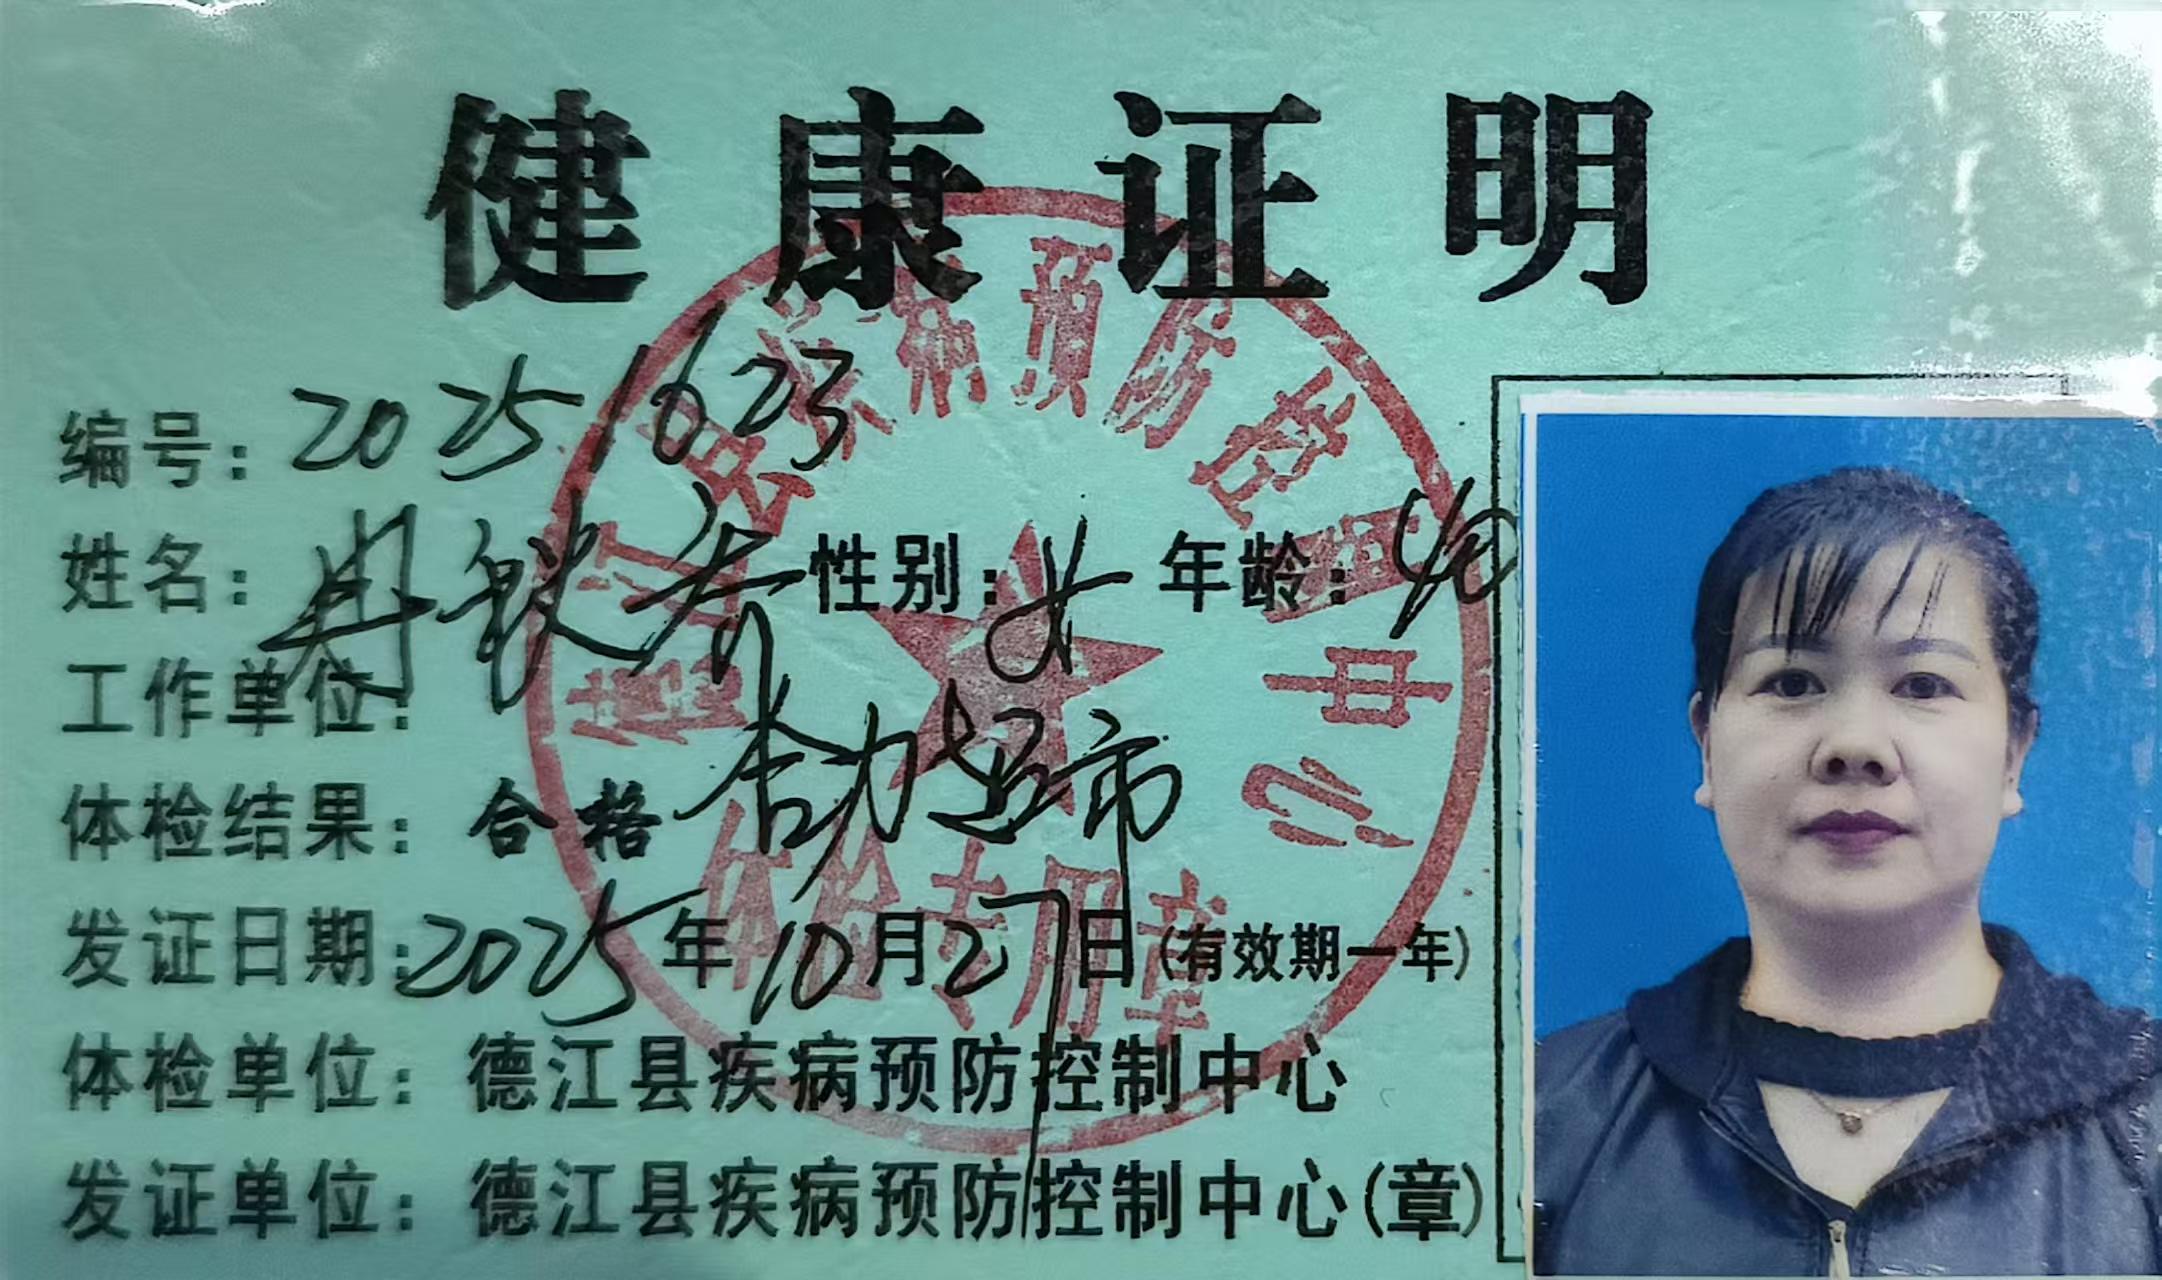 健康证明
编号：20251623
姓名：冉 性别：女 年龄：40
工作单位：合力超市
体检结果：合格
发证日期：2025年10月27日（有效期一年）
体检单位：德江县疾病预防控制中心
发证单位：德江县疾病预防控制中心（章）
德江县疾病预防控制中心
体检专用章